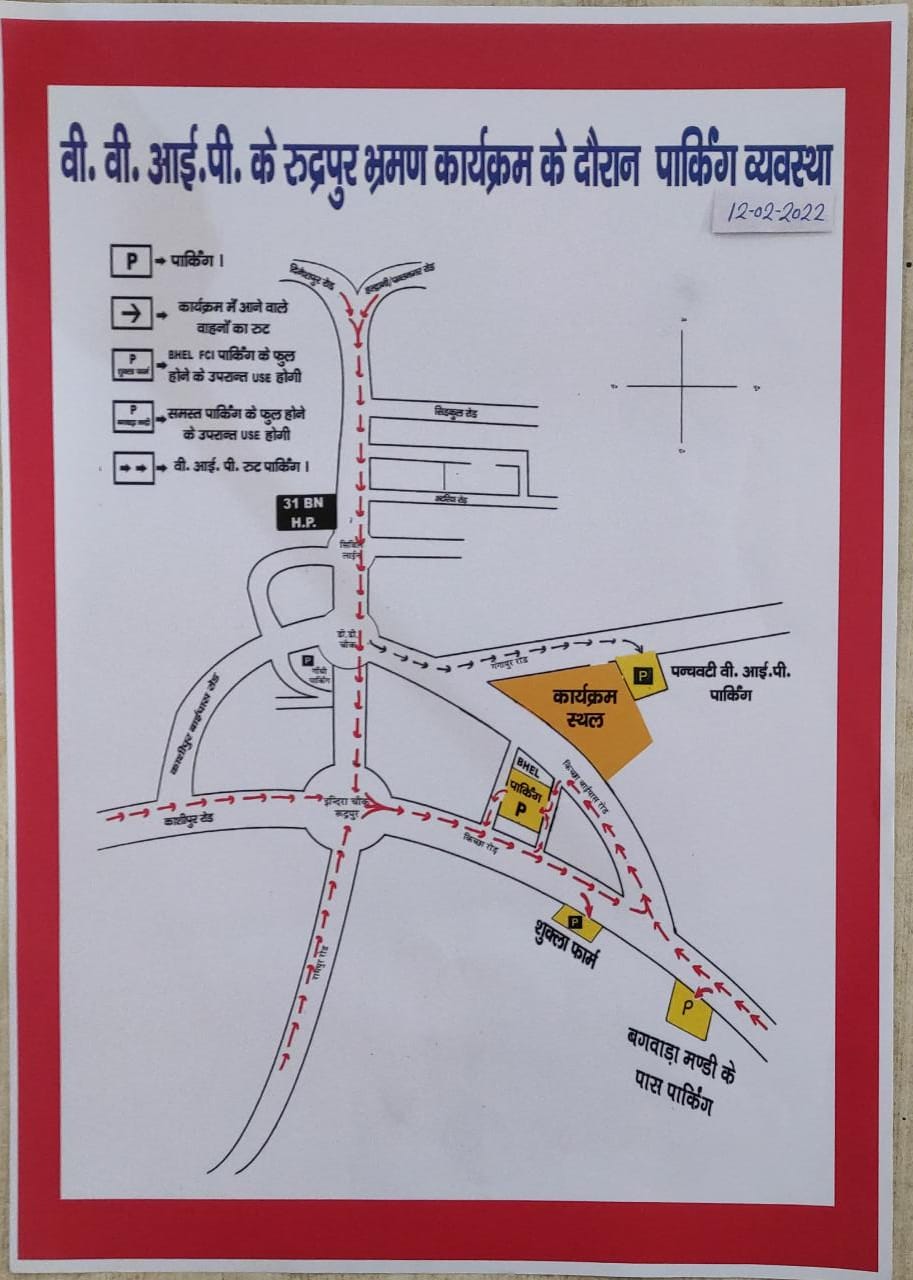 वी. वी. आई.पी. के रुद्रपुर भ्रमण कार्यक्रम के दौरान पार्किंग व्यवस्था
12-02-2022
P → पार्किंग ।
कार्यक्रम में आने वाले
वाहनों का रुट
P
शुक्ला फार्म
BHEL FCI पार्किंग के फुल
होने के उपरान्त USE होगी
P
समस्त पार्किंग के फुल होने
के उपरान्त USE होगी
वी. आई. पी. रुट पार्किंग ।
दिनेशपुर रोड
हल्द्वानी/पन्तनगर रोड
सिडकुल रोड
31 BN
H.P.
सिविल
लाईन
डी.डी.
चौक
P
गाँधी
पार्किंग
गंगापुर रोड
P
पन्चवटी वी. आई.पी.
पार्किंग
कार्यक्रम
स्थल
काशीपुर बाईपास रोड
BHEL
पार्किंग
P
किच्छा बाईपास रोड
इन्दिरा चौक
रूद्रपुर
काशीपुर रोड
किच्छा रोड
P
शुक्ला फार्म
रामपुर रोड
P
बगवाड़ा मण्डी के
पास पार्किंग